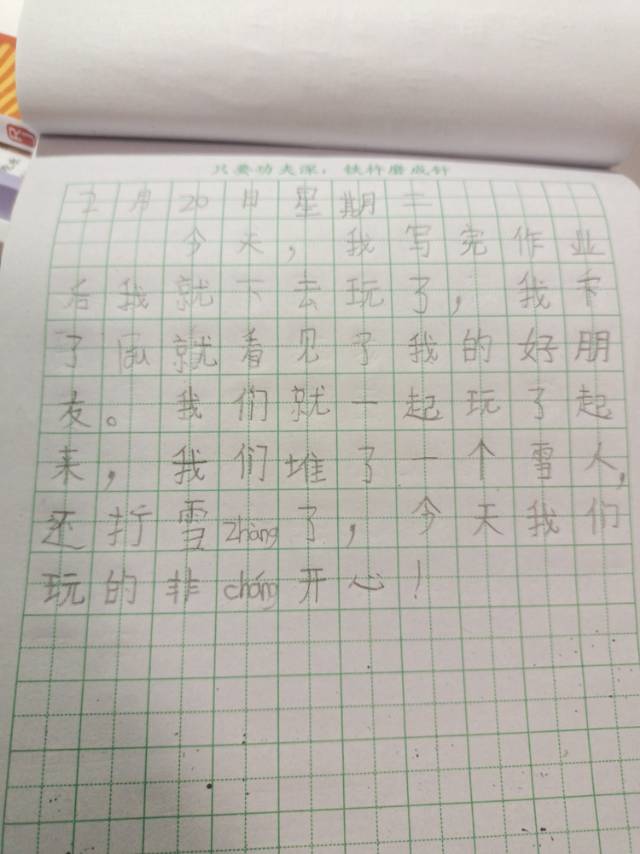 只要功夫深，铁杵磨成针
月 20 日 星期二
今天，我写完作业
后我就下去玩了，我下
了就看见了我的好朋
友。我们就一起玩了起
来，我们堆了一个雪人，
还打雪zhàng了，今天我们
玩的非cháng开心！